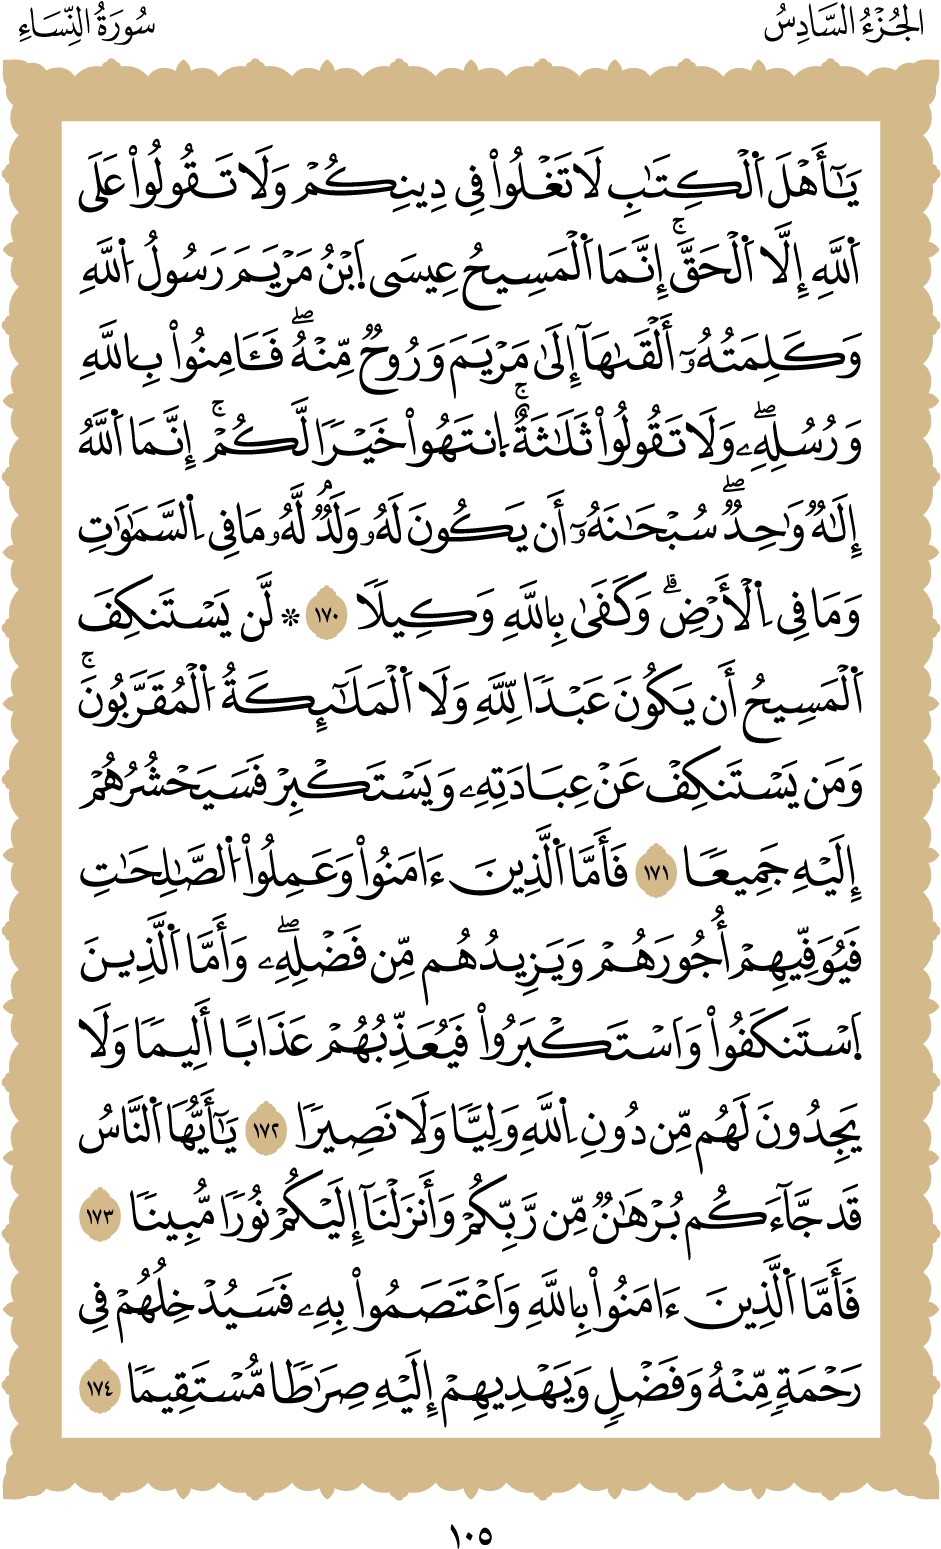 الجُزْءُ السَّادِسُ
سُورَةُ النِّسَاءِ
يَـٰٓأَهْلَ اَ۬لْكِتَـٰبِ لَا تَغْلُواْ فِي دِينِكُمْ وَلَا تَقُولُواْ عَلَى
اَ۬للَّهِ إِلَّا اَ۬لْحَقَّۚ إِنَّمَا اَ۬لْمَسِيحُ عِيسَى اَ۪بْنُ مَرْيَمَ رَسُولُ اُ۬للَّهِ
وَكَلِمَتُهُۥٓ أَلْقَىٰهَآ إِلَىٰ مَرْيَمَ وَرُوحٌ مِّنْهُۖ فَـَٔامِنُواْ بِاللَّهِ
وَرُسُلِهِۦۖ وَلَا تَقُولُواْ ثَلَـٰثَةٌۚ اِ۪نتَهُواْ خَيْرًا لَّكُمْۚ إِنَّمَا اَ۬للَّهُ
إِلَـٰهٌ وَٰحِدٌۖ سُبْحَـٰنَهُۥٓ أَن يَكُونَ لَهُۥ وَلَدٌۘ لَّهُۥ مَا فِي اِ۬لسَّمَـٰوَٰتِ
وَمَا فِي اِ۬لْأَرْضِۗ وَكَفَىٰ بِاللَّهِ وَكِيلًا ١٧٠ ۞ لَّن يَسْتَنكِفَ
اَ۬لْمَسِيحُ أَن يَكُونَ عَبْدًا لِّلَّهِ وَلَا اَ۬لْمَلَـٰٓئِكَةُ اُ۬لْمُقَرَّبُونَۚ
وَمَن يَسْتَنكِفْ عَنْ عِبَادَتِهِۦ وَيَسْتَكْبِرْ فَسَيَحْشُرُهُمْ
إِلَيْهِ جَمِيعًا ١٧١ فَأَمَّا اَ۬لَّذِينَ ءَامَنُواْ وَعَمِلُواْ اُ۬لصَّـٰلِحَـٰتِ
فَيُوَفِّيهِمْ أُجُورَهُمْ وَيَزِيدُهُم مِّن فَضْلِهِۦۖ وَأَمَّا اَ۬لَّذِينَ
اَ۪سْتَنكَفُواْ وَاَسْتَكْبَرُواْ فَيُعَذِّبُهُمْ عَذَابًا أَلِيمًا وَلَا
يَجِدُونَ لَهُم مِّن دُونِ اِ۬للَّهِ وَلِيًّا وَلَا نَصِيرًا ١٧٢ يَـٰٓأَيُّهَا اَ۬لنَّاسُ
قَد جَّآءَكُم بُرْهَـٰنٌ مِّن رَّبِّكُمْ وَأَنزَلْنَآ إِلَيْكُمْ نُورًا مُّبِينًا ١٧٣
فَأَمَّا اَ۬لَّذِينَ ءَامَنُواْ بِاللَّهِ وَاَعْتَصَمُواْ بِهِۦ فَسَيُدْخِلُهُمْ فِي
رَحْمَةٍ مِّنْهُ وَفَضْلٍ وَيَهْدِيهِمْ إِلَيْهِ صِرَٰطًا مُّسْتَقِيمًا ١٧٤
١٠٥